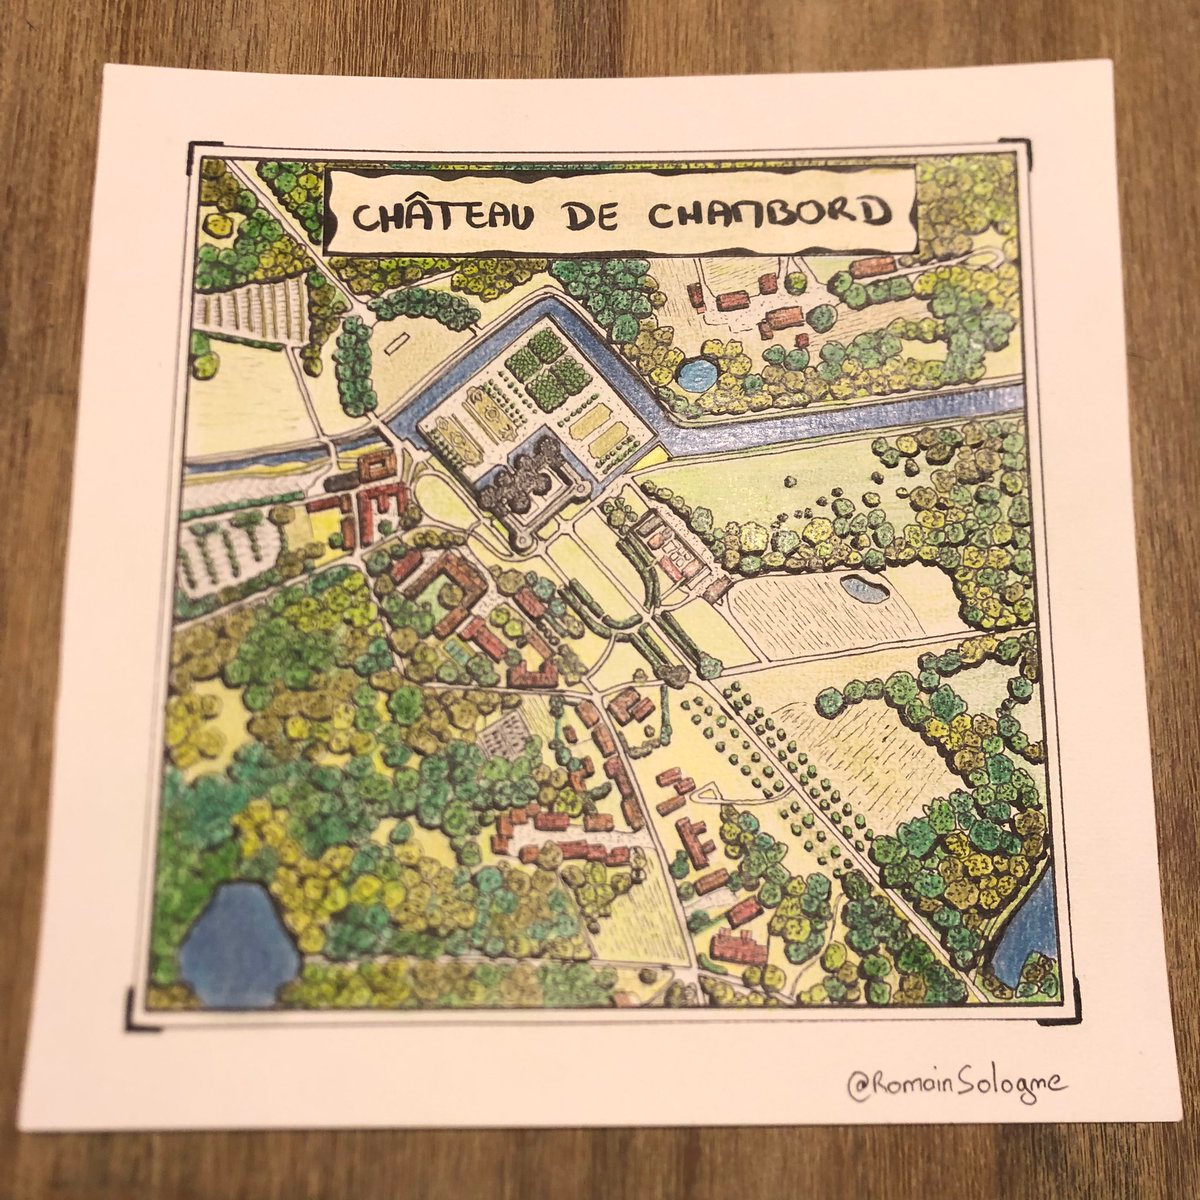 CHÂTEAU DE CHAMBORD
@RomainSologne